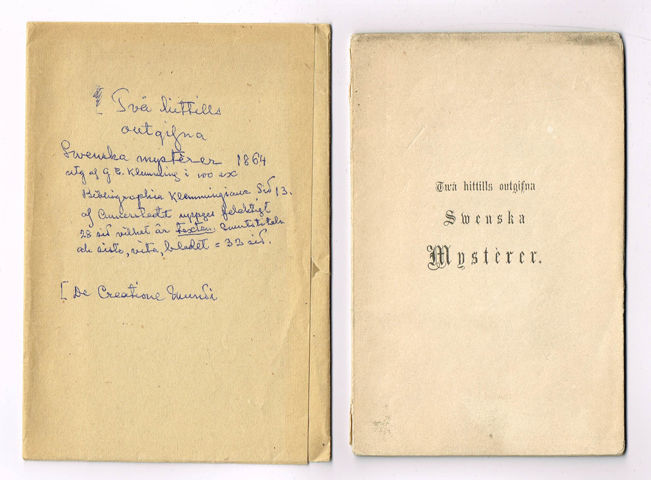 [ Två hittills
outgifna
Swenska mystèrer 1864
utg af G E. Klemming i 100 ex
Bibliographia Klemmingiana Sid 13.
af uppges felaktigt
28 sid vilket är Texten.
sista, vita, bladet = 32 sid.
[ De Creatione Mundi
Twå hittills outgifna
Swenska
Mystèrer.